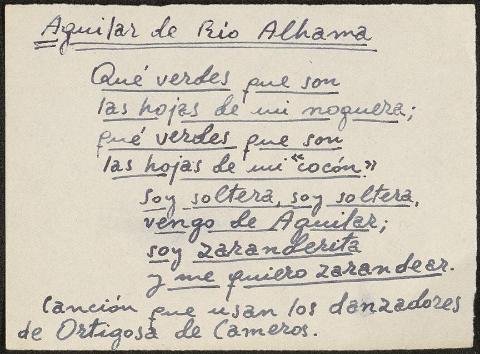 Aguilar de Río Alhama
Qué verdes que son
las hojas de mi noguera;
qué verdes que son
las hojas de mi "cocón"
soy soltera, soy soltera,
vengo de Aguilar;
soy zaranderita
y me quiero zarandear.
Canción que usan los danzadores
de Ortigosa de Cameros.